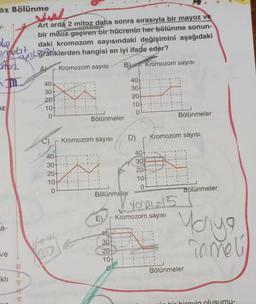 oz Bölünme
Art arda 2 mitoz daha sonra sırasıyla bir mayoz ve
bir mitoz geçiren bir hücrenin her bölünme sonun-
daki kromozom sayısındaki değişimini aşağıdaki
grafiklerden hangisi en iyi ifade eder?
A) Kromozom sayısı
40
30
20
10
0
Bölünmeler
B) Kromozom sayısı
40
30
20
10
0
Bölünmeler
C) Kromozom sayısı
40
30
20
10
0
Bölünmeler
D) Kromozom sayısı
40
30
20
10
0
Bölünmeler
E) Kromozom sayısı
40
30
20
10
0
Bölünmeler
yarıya
inmeli
oz
a-
ve
klı